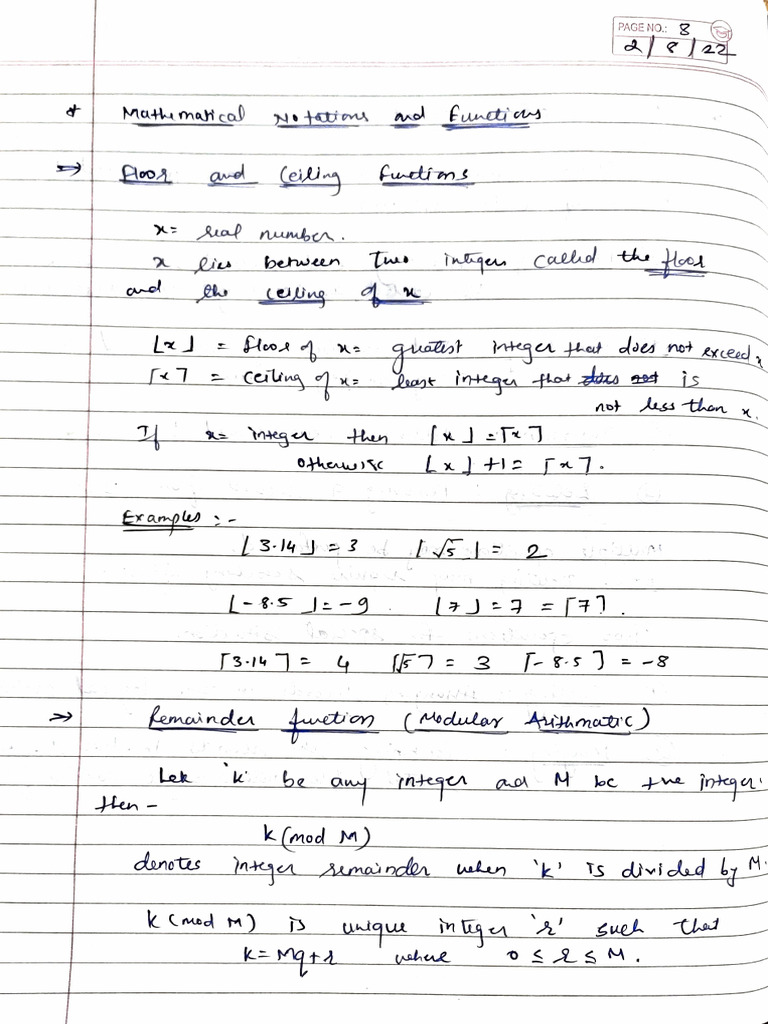 PAGE NO.: 8
2/8/22
* Mathematical Notations and Functions
⇒ Floor and Ceiling Functions
x = real number.
x lies between Two integers called the floor
and the ceiling of x
⌊x⌋ = floor of x = greatest integer that does not exceed x
⌈x⌉ = ceiling of x = least integer that does not is
not less than x.
If x = integer then ⌈x⌋ = ⌈x⌉
otherwise ⌊x⌋ + 1 = ⌈x⌉.
Examples :-
⌊3.14⌋ = 3 ⌊√5⌋ = 2
⌊-8.5⌋ = -9 ⌊7⌋ = 7 = ⌈7⌉.
⌈3.14⌉ = 4 ⌈√5⌉ = 3 ⌈-8.5⌉ = -8
⇒ Remainder function (Modular Arithmatic)
Let 'k' be any integer ad M be +ve integer.
then -
k (mod M)
denotes integer remainder when 'k' is divided by M.
k (mod M) is unique integer 'r' such that
k = Mq + r where 0 ≤ r ≤ M.